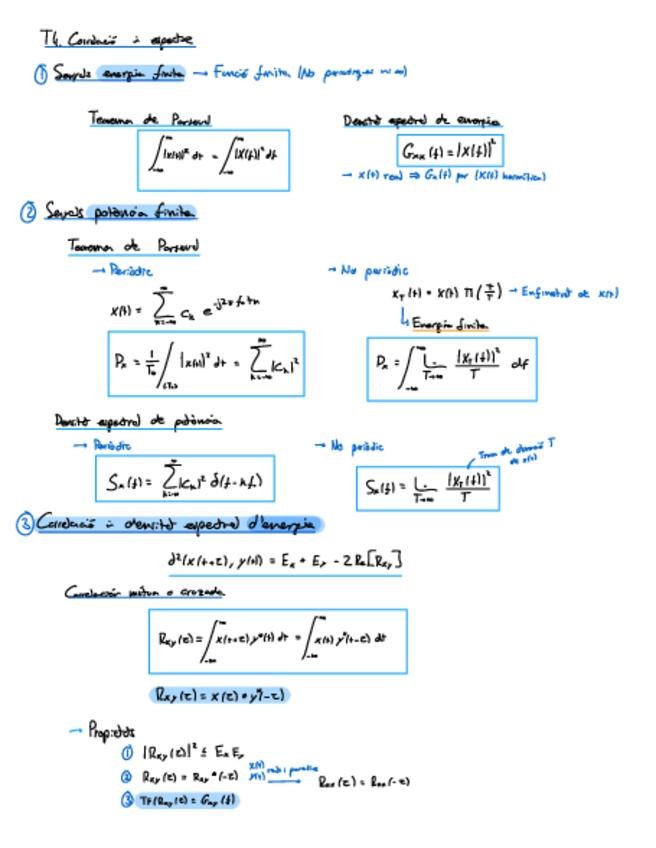 T4. Correlació i espectre
① Senyals energia finita → Funció finita (No periòdiques ni ∞)
Teorema de Parseval
∫_{-∞}^{∞} |x(t)|² dt = ∫_{-∞}^{∞} |X(f)|² df
Densitat espectral de energia
Gxx(f) = |X(f)|²
→ x(t) real ⇒ Gx(f) par (X(f) hermítica)
② Senyals potència finita
Teorema de Parseval
→ Periòdic
x(t) = Σ_{k=-∞}^{∞} Ck e^{-j2πf₀tn}
Px = 1/T₀ ∫_{(T₀)} |x(t)|² dt = Σ_{k=-∞}^{∞} |Ck|²
→ No periòdic
xT(t) = x(t) Π(t/T) → Enfinestrat de x(t)
↳ Energia finita
Px = ∫_{-∞}^{∞} L_{T→∞} |XT(f)|²/T df
Densitat espectral de potència
→ Periòdic
Sx(f) = Σ_{k=-∞}^{∞} |Ck|² δ(f-kf₀)
→ No periòdic
T de x(t)
Sx(f) = L_{T→∞} |XT(f)|²/T
③ Correlació i densitat espectral d'energia
d²(x(t+τ), y(t)) = Ex + Ey - 2Re[Rxy]
Correlación mútua o cruzada
Rxy(τ) = ∫_{-∞}^{∞} x(t+τ) y*(t) dt = ∫_{-∞}^{∞} x(t) y*(t-τ) dt
Rxy(τ) = x(τ) * y*(-τ)
→ Propietats
① |Rxy(τ)|² ≤ Ex Ey
② Rxy(τ) = Rxy*(-τ) x(t) y(t) reals → Rxx(τ) = Rxx(-τ)
③ TF(Rxy(τ)) = Gxy(f)